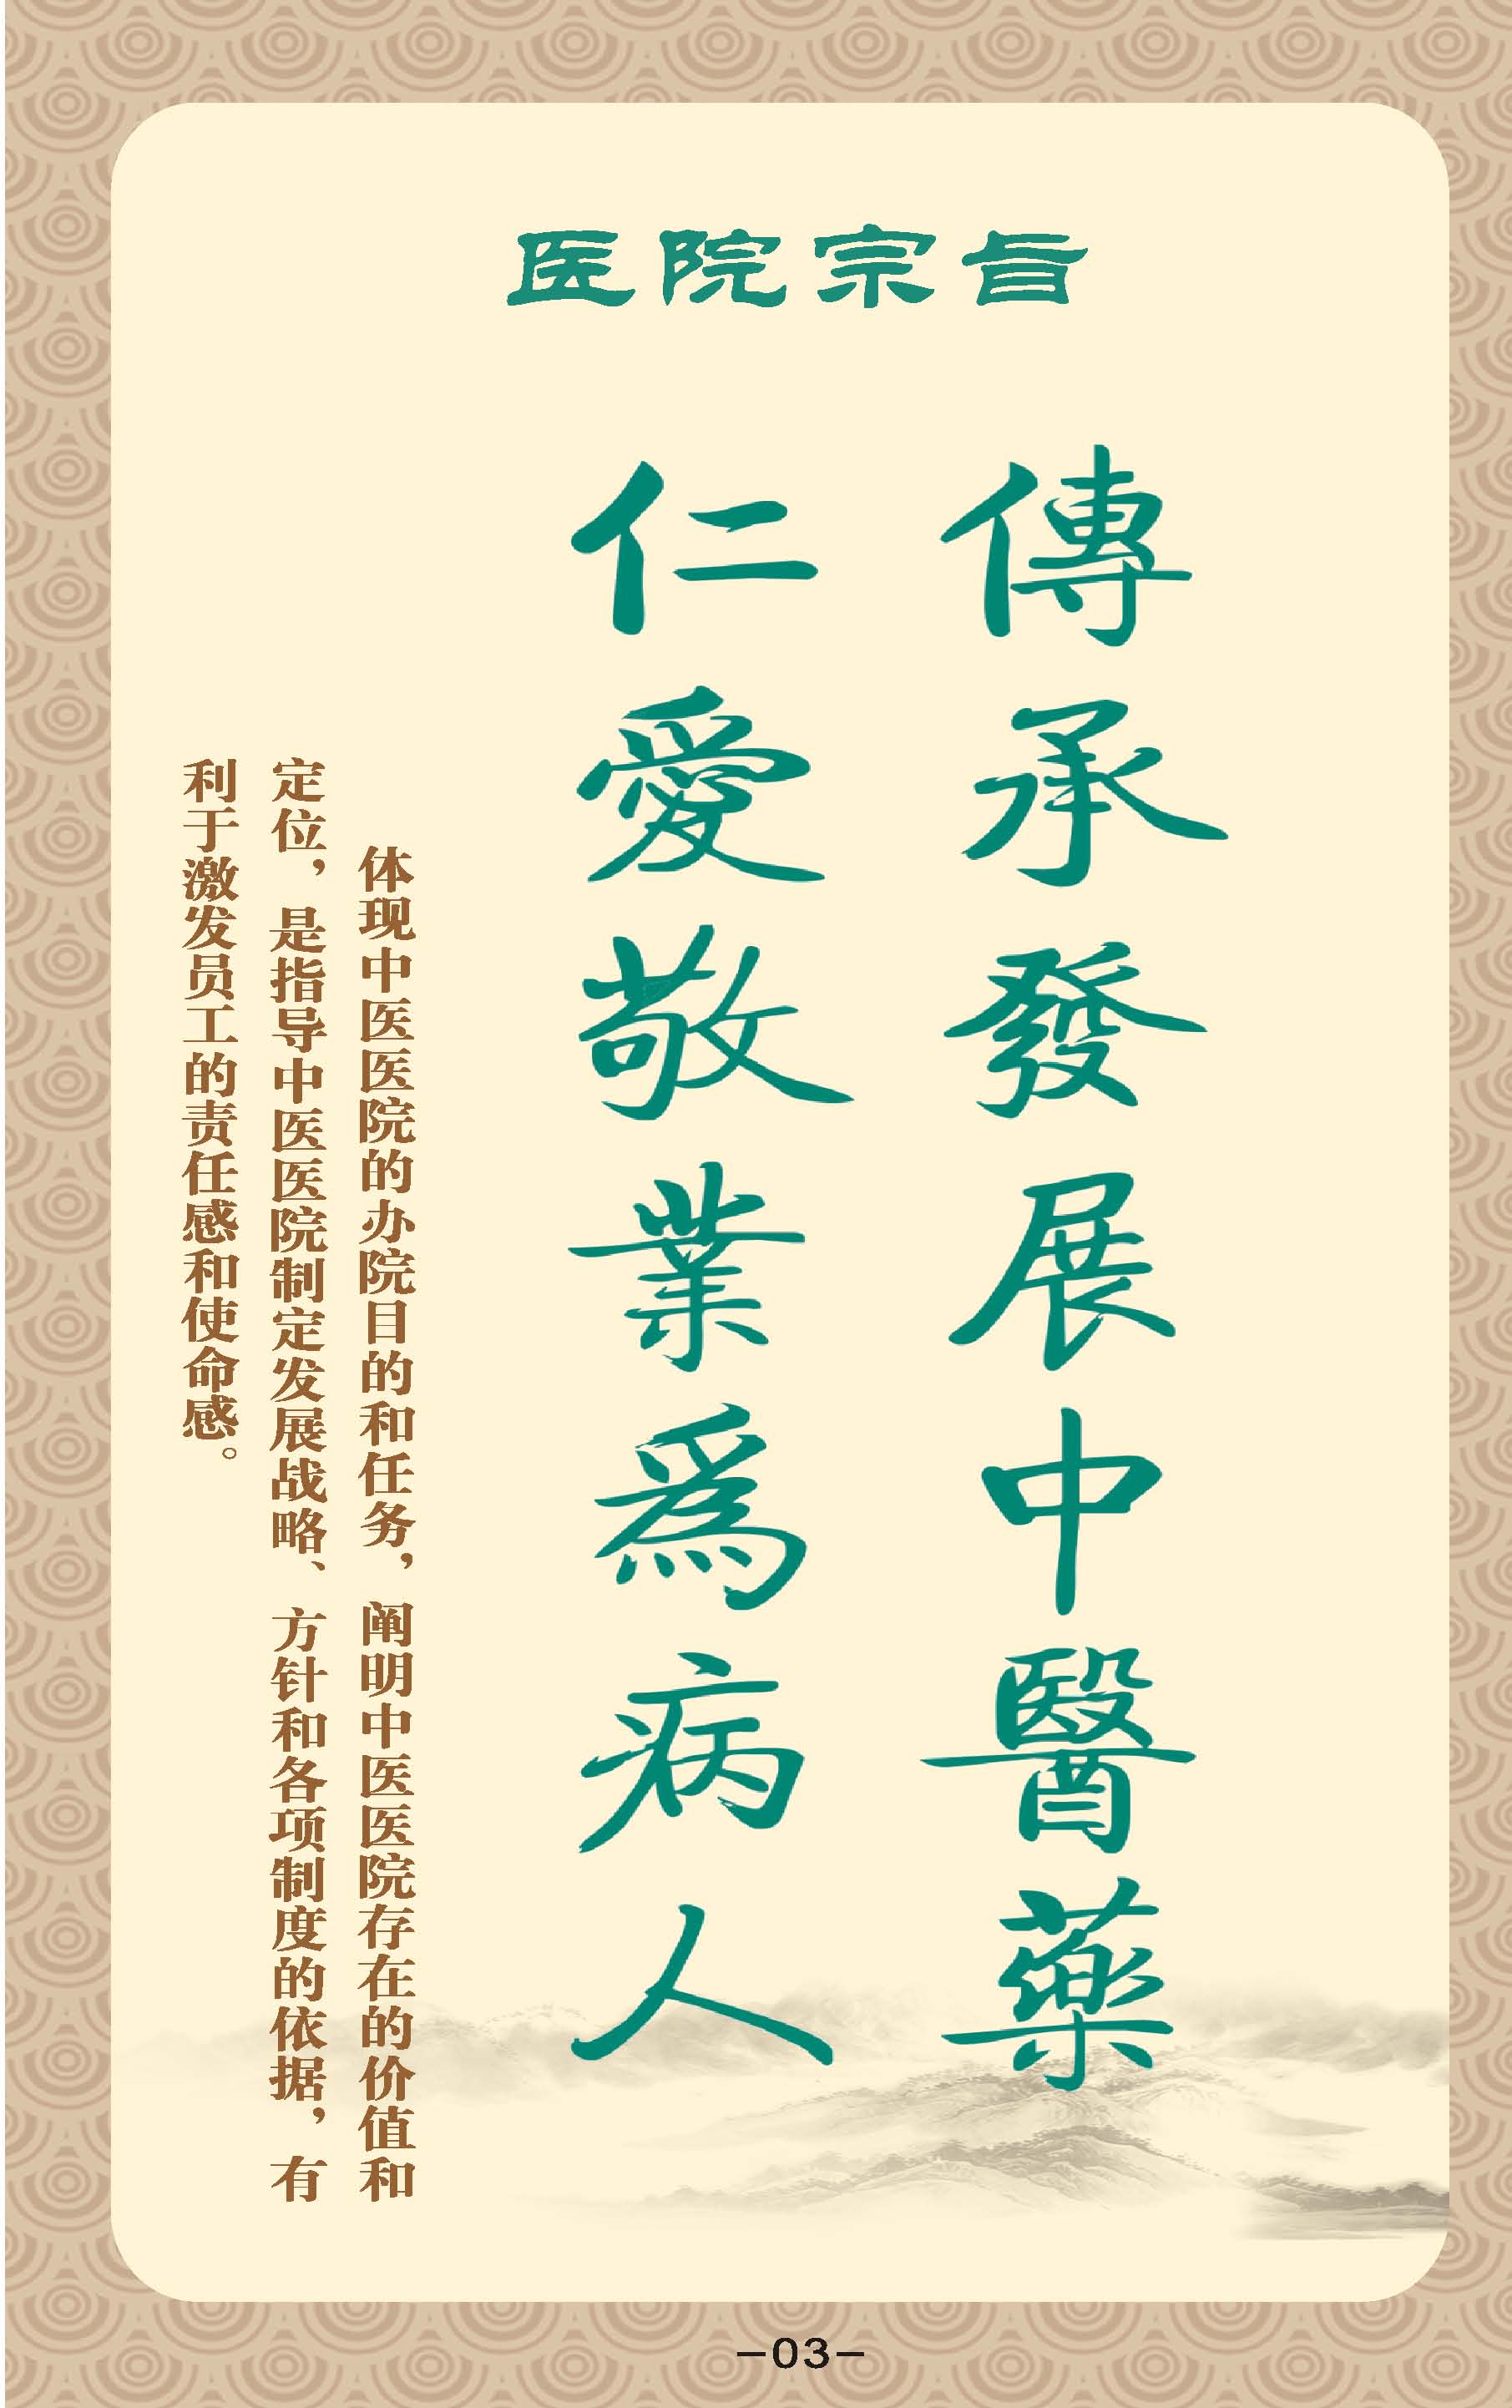 医院宗旨
傳承發展中醫藥
仁愛敬業爲病人
体现中医医院的办院目的和任务，阐明中医医院存在的价值和
定位，是指导中医医院制定发展战略、方针和各项制度的依据，有
利于激发员工的责任感和使命感。
-03-